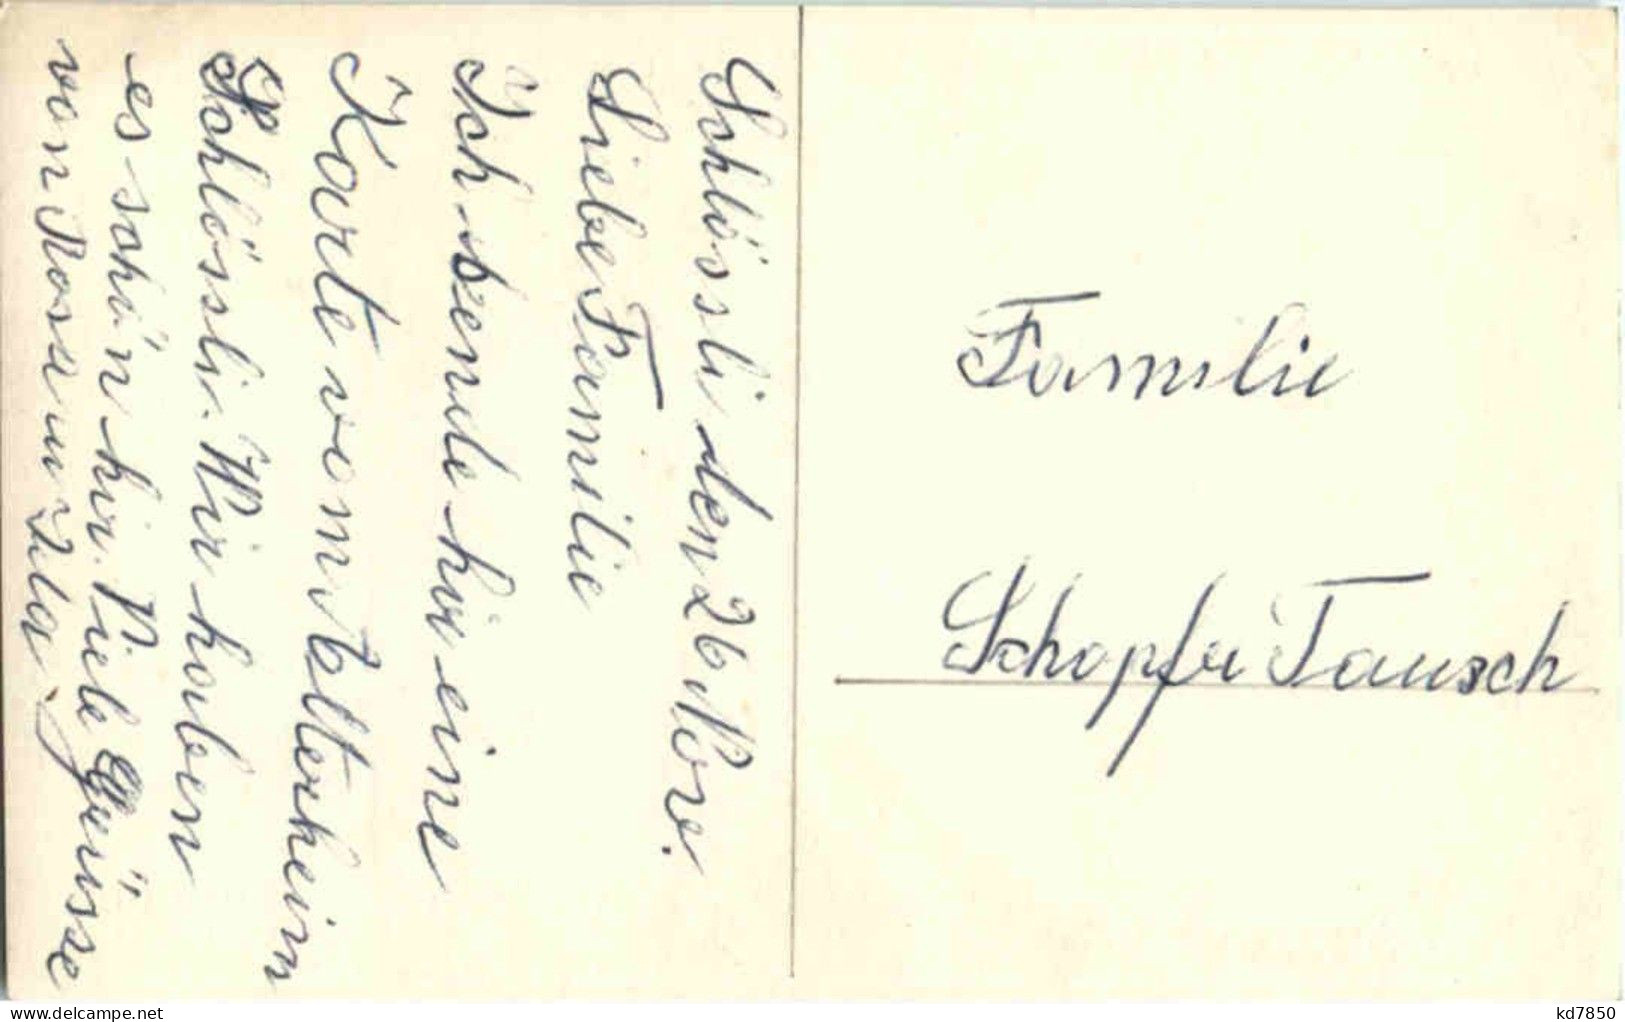 Schlössli den 26 Nov.
Liebe Familie
Ich sende hir eine
Karte vom Altersheim
Schlössli. Wir haben
es schön hir. Viele Grüsse
von Rosa u.
Familie
Schopfer Tausch
delcampe.net
kd7850